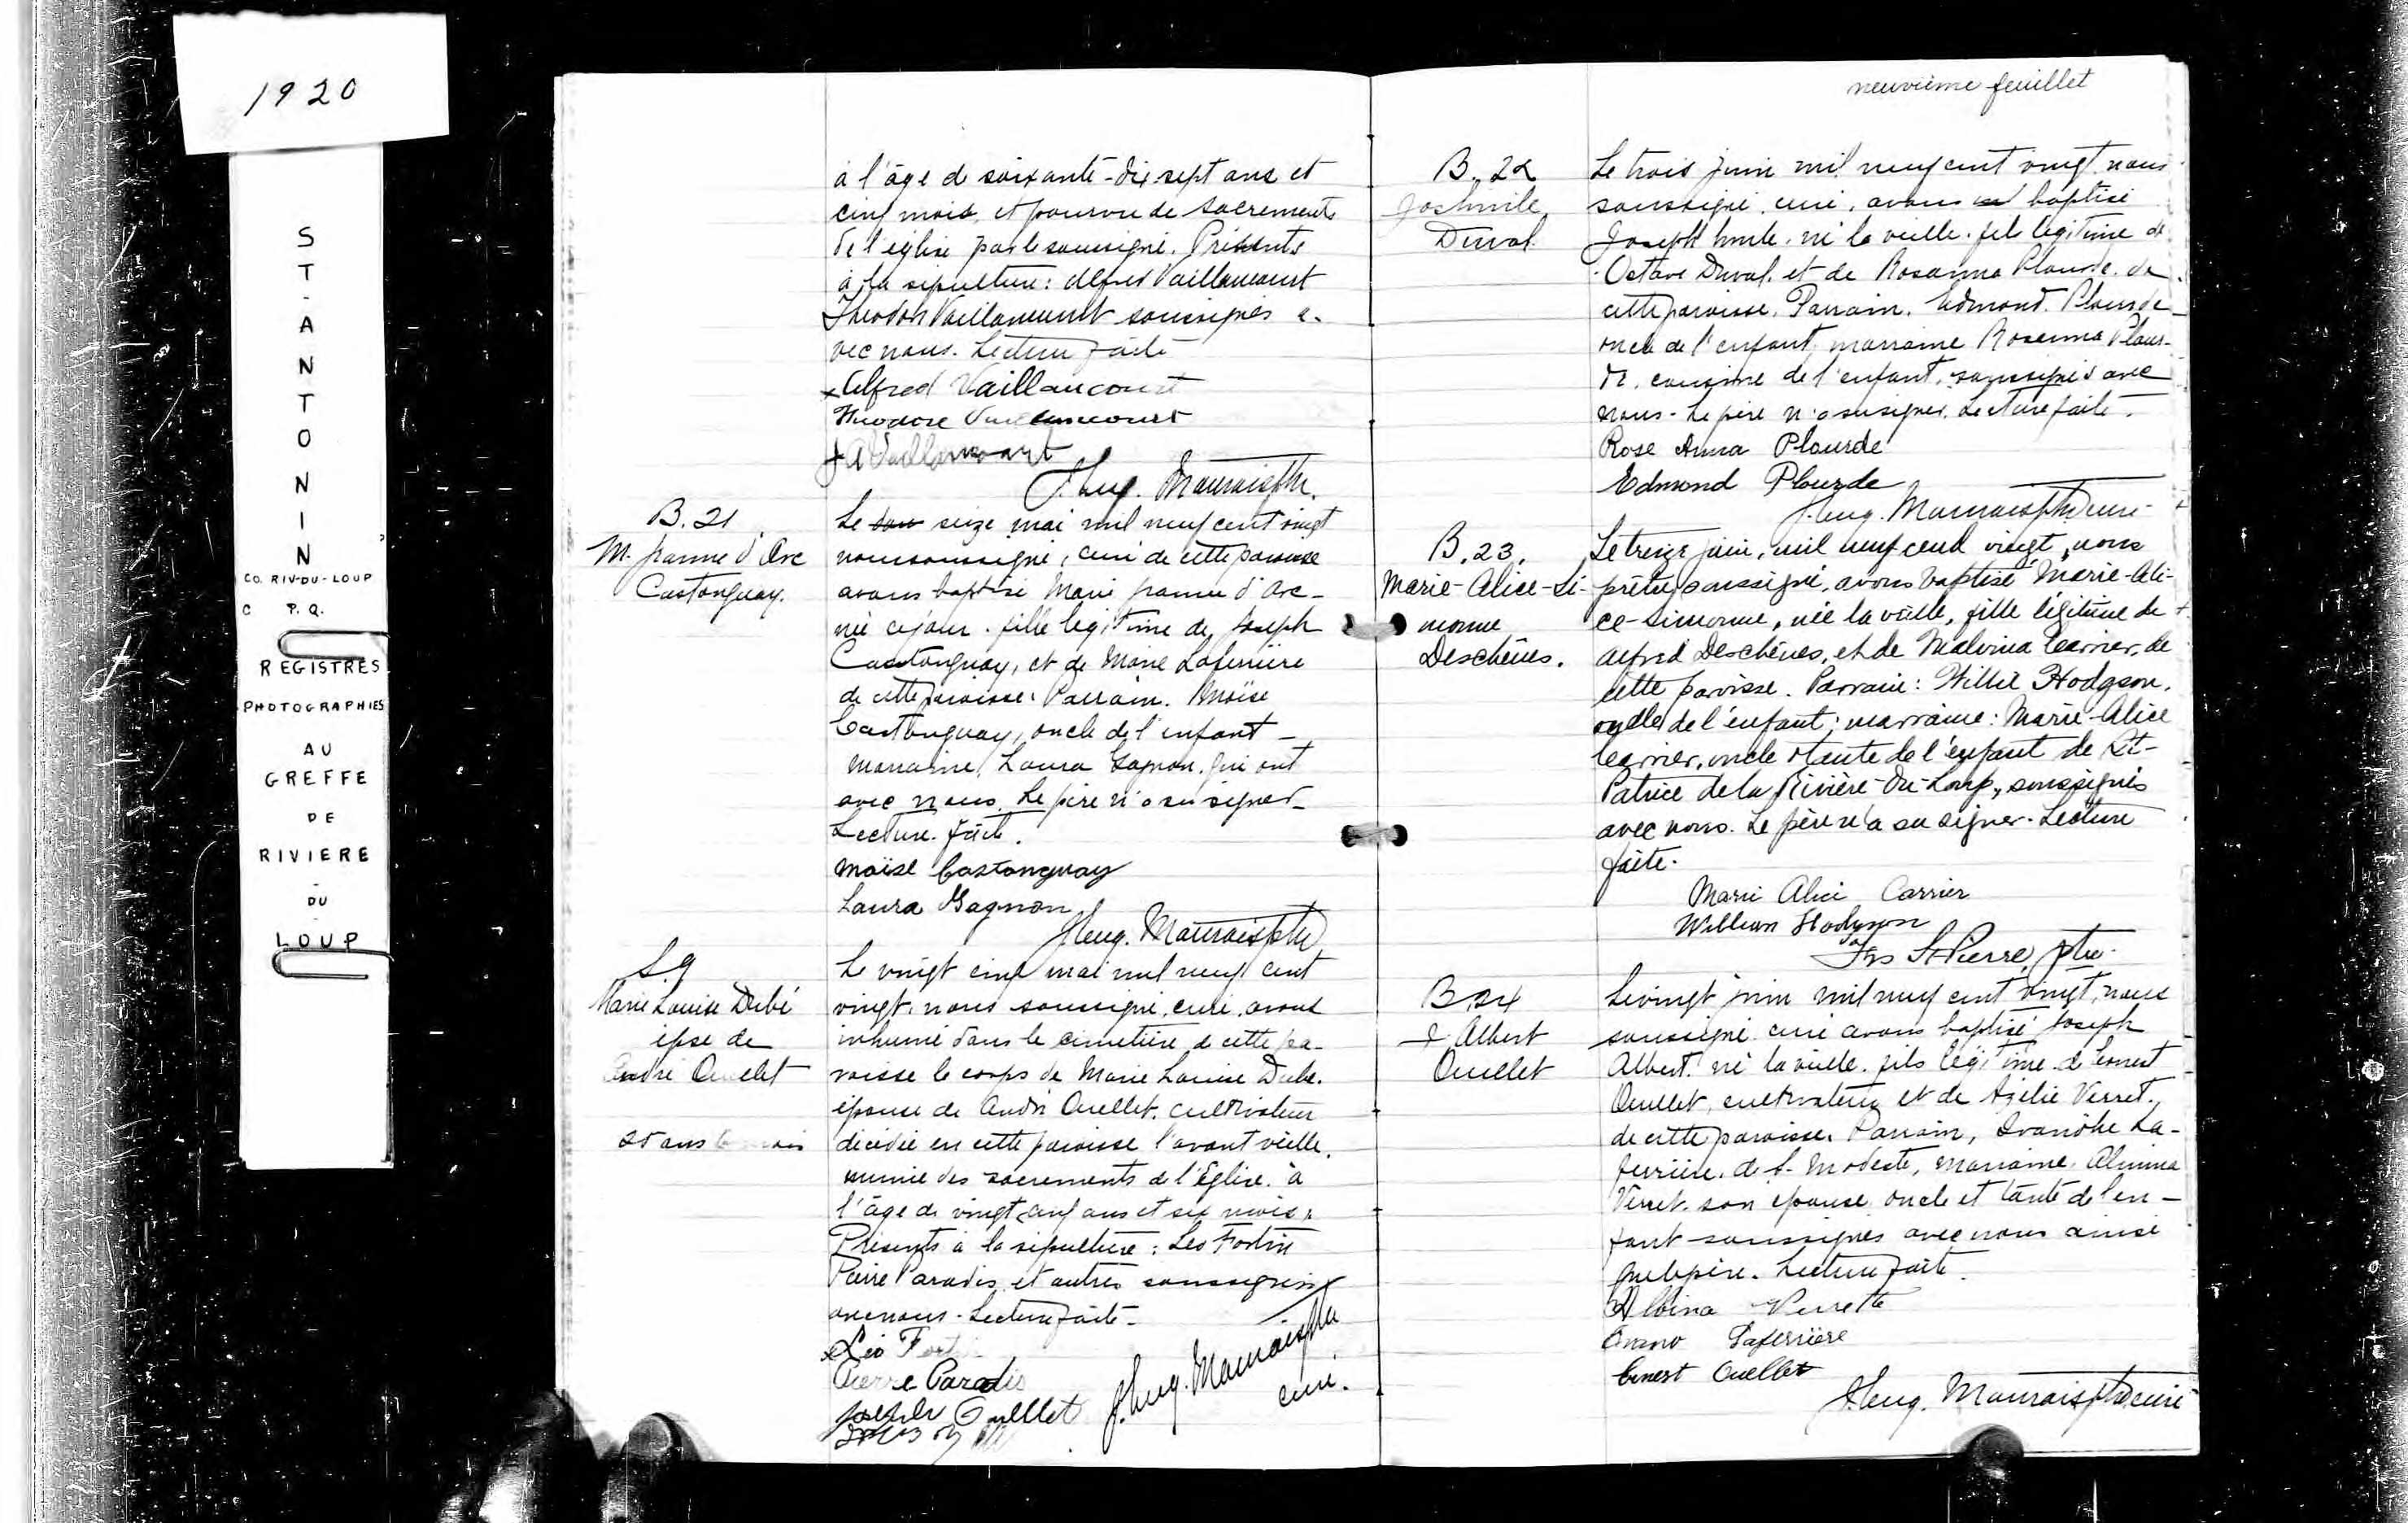 1920
S
T
-
A
N
T
O
N
I
N
CO. RIV-DU-LOUP
C P.Q.
REGISTRES
PHOTOGRAPHIES
AU
GREFFE
DE
RIVIERE
-
DU
LOUP
à l'âge de soixante-dix-sept ans et
cinq mois, et pourvu de sacrements
de l'église par le soussigné. Présents
à la sépulture: Alfred Vaillancourt
Théodore Vaillancourt soussignés a-
vec nous. Lecture faite
Alfred Vaillancourt
Theodore Vaillancourt
J A Vaillancourt
J. Eug. Maurais ptre.
B. 21
M. Jeanne d'Arc
Castonguay.
Le seize mai mil neuf cent vingt
nous soussigné, curé de cette paroisse
avons baptisé Marie Jeanne d'Arc-
née ce jour. fille légitime de Joseph
Castonguay, et de Marie Laferrière
de cette paroisse. Parrain. Moïse
Castonguay, oncle de l'enfant-
marraine, Laura Gagnon. qui ont
avec nous. Le père n'a su signer-
Lecture faite.
Moïse Castonguay
Laura Gagnon
J. Eug. Maurais ptre
S. 9
Marie Louise Dubé
épse de
André Ouellet
25 ans 6 mois
Le vingt cinq mai mil neuf cent
vingt, nous soussigné, curé, avons
inhumé dans le cimetière de cette pa-
roisse le corps de Marie Louise Dubé.
épouse de André Ouellet. cultivateur
décédée en cette paroisse l'avant veille.
munie des sacrements de l'Eglise. à
l'âge de vingt-cinq ans et six mois.
Présents à la sépulture: Léo Fortin
Pierre Paradis et autres soussignés
avec nous. Lecture faite-
Léo Fortin
Pierre Paradis
Joseph Ouellet
J. Eug. Maurais ptre
curé.
neuvième feuillet
B. 22
Jos Emile
Duval
Le trois juin mil neuf cent vingt nous
soussigné, curé, avons baptisé
Joseph Emile. né la veille. fils légitime de
Octave Duval, et de Rosanna Plourde. de
cette paroisse, Parrain. Edmond. Plourde
oncle de l'enfant, marraine Rosanna Plour-
de. cousine de l'enfant, soussignés avec
nous. Le père n'a su signer. Lecture faite.
Rose Anna Plourde
Edmond Plourde
J. Eug. Maurais ptre curé
B. 23.
Marie-Alice-Si-
monne
Deschênes.
Le treize juin, mil neuf cent vingt, nous
prêtre soussigné, avons baptisé Marie-Ali-
ce-Simonne, née la veille, fille légitime de
Alfred Deschênes, et de Malvina Carrier, de
cette paroisse. Parrain: Willie Hodgson,
oncle de l'enfant; marraine: Marie-Alice
Carrier, oncle et tante de l'enfant de St-
Patrice de la Rivière-du-Loup, soussignés
avec nous. Le père n'a su signer. Lecture
faite.
Marie Alice Carrier
William Hodgson
Jos St Pierre, ptre.
B 24
J. Albert
Ouellet
Le vingt juin mil neuf cent vingt, nous
soussigné curé avons baptisé Joseph
Albert. né la veille. fils légitime de Ernest
Ouellet, cultivateur et de Azélie Verret.
de cette paroisse. Parrain, Ivanöhe La-
ferrière. de St. Modeste, marraine, Alvina
Verret. son épouse oncle et tante de l'en-
fant soussignés avec nous ainsi
que le père. Lecture faite.
Alvina Verrette
Laferrière
Ernest Ouellet
J. Eug. Maurais ptre, curé